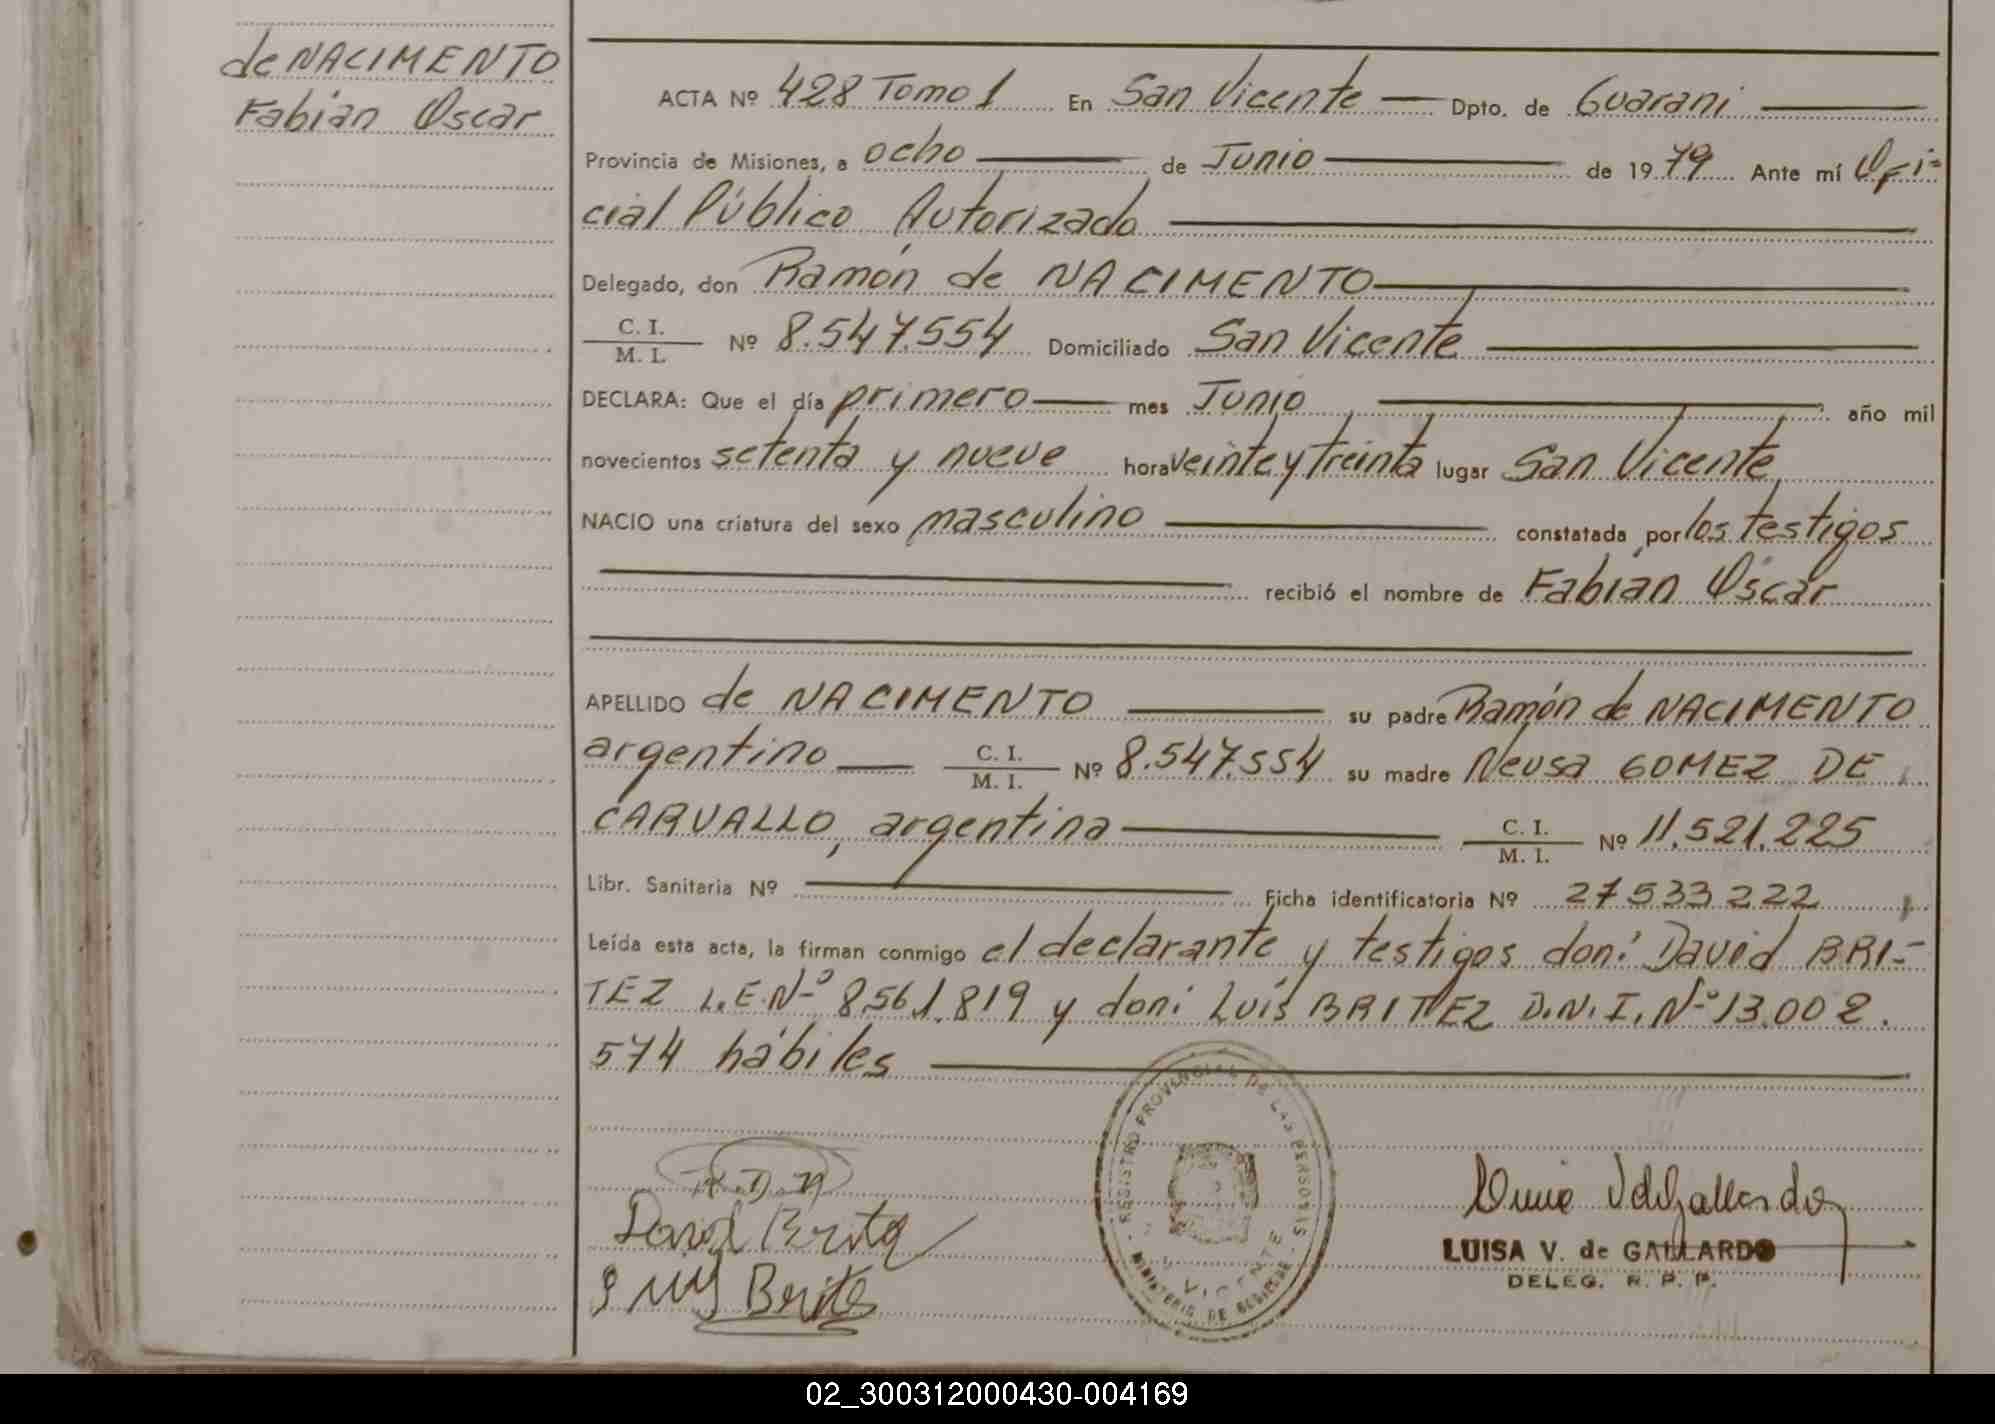 de NACIMENTO
Fabián Oscar
ACTA Nº 428 Tomo 1 En San Vicente Dpto. de Guarani
Provincia de Misiones, a ocho de Junio de 1979 Ante mí Ofi=
cial Público Autorizado
Delegado, don Ramón de NACIMENTO
C. I.
M. I. Nº 8.547.554 Domiciliado San Vicente
DECLARA: Que el día primero mes Junio año mil
novecientos setenta y nueve hora veinte y treinta lugar San Vicente
NACIO una criatura del sexo masculino constatada por los testigos
recibió el nombre de Fabián Oscar
APELLIDO de NACIMENTO su padre Ramón de NACIMENTO
argentino C. I.
M. I. Nº 8.547.554 su madre Neusa GOMEZ DE
CARVALLO, argentina C. I.
M. I. Nº 11.521.225
Libr. Sanitaria Nº Ficha identificatoria Nº 27533222
Leída esta acta, la firman conmigo el declarante y testigos don: David BRI-
TEZ L.E.Nº 8.561.819 y don: Luis BRITEZ D.N.I. Nº 13.002.
574 hábiles
REGISTRO PROVINCIAL DE LAS PERSONAS
MINISTERIO DE GOBIERNO
VICENTE
R.D.N
David Britez
Luis Britez
LUISA V. de GALLARDO
DELEG. R. P. P.
02_300312000430-004169